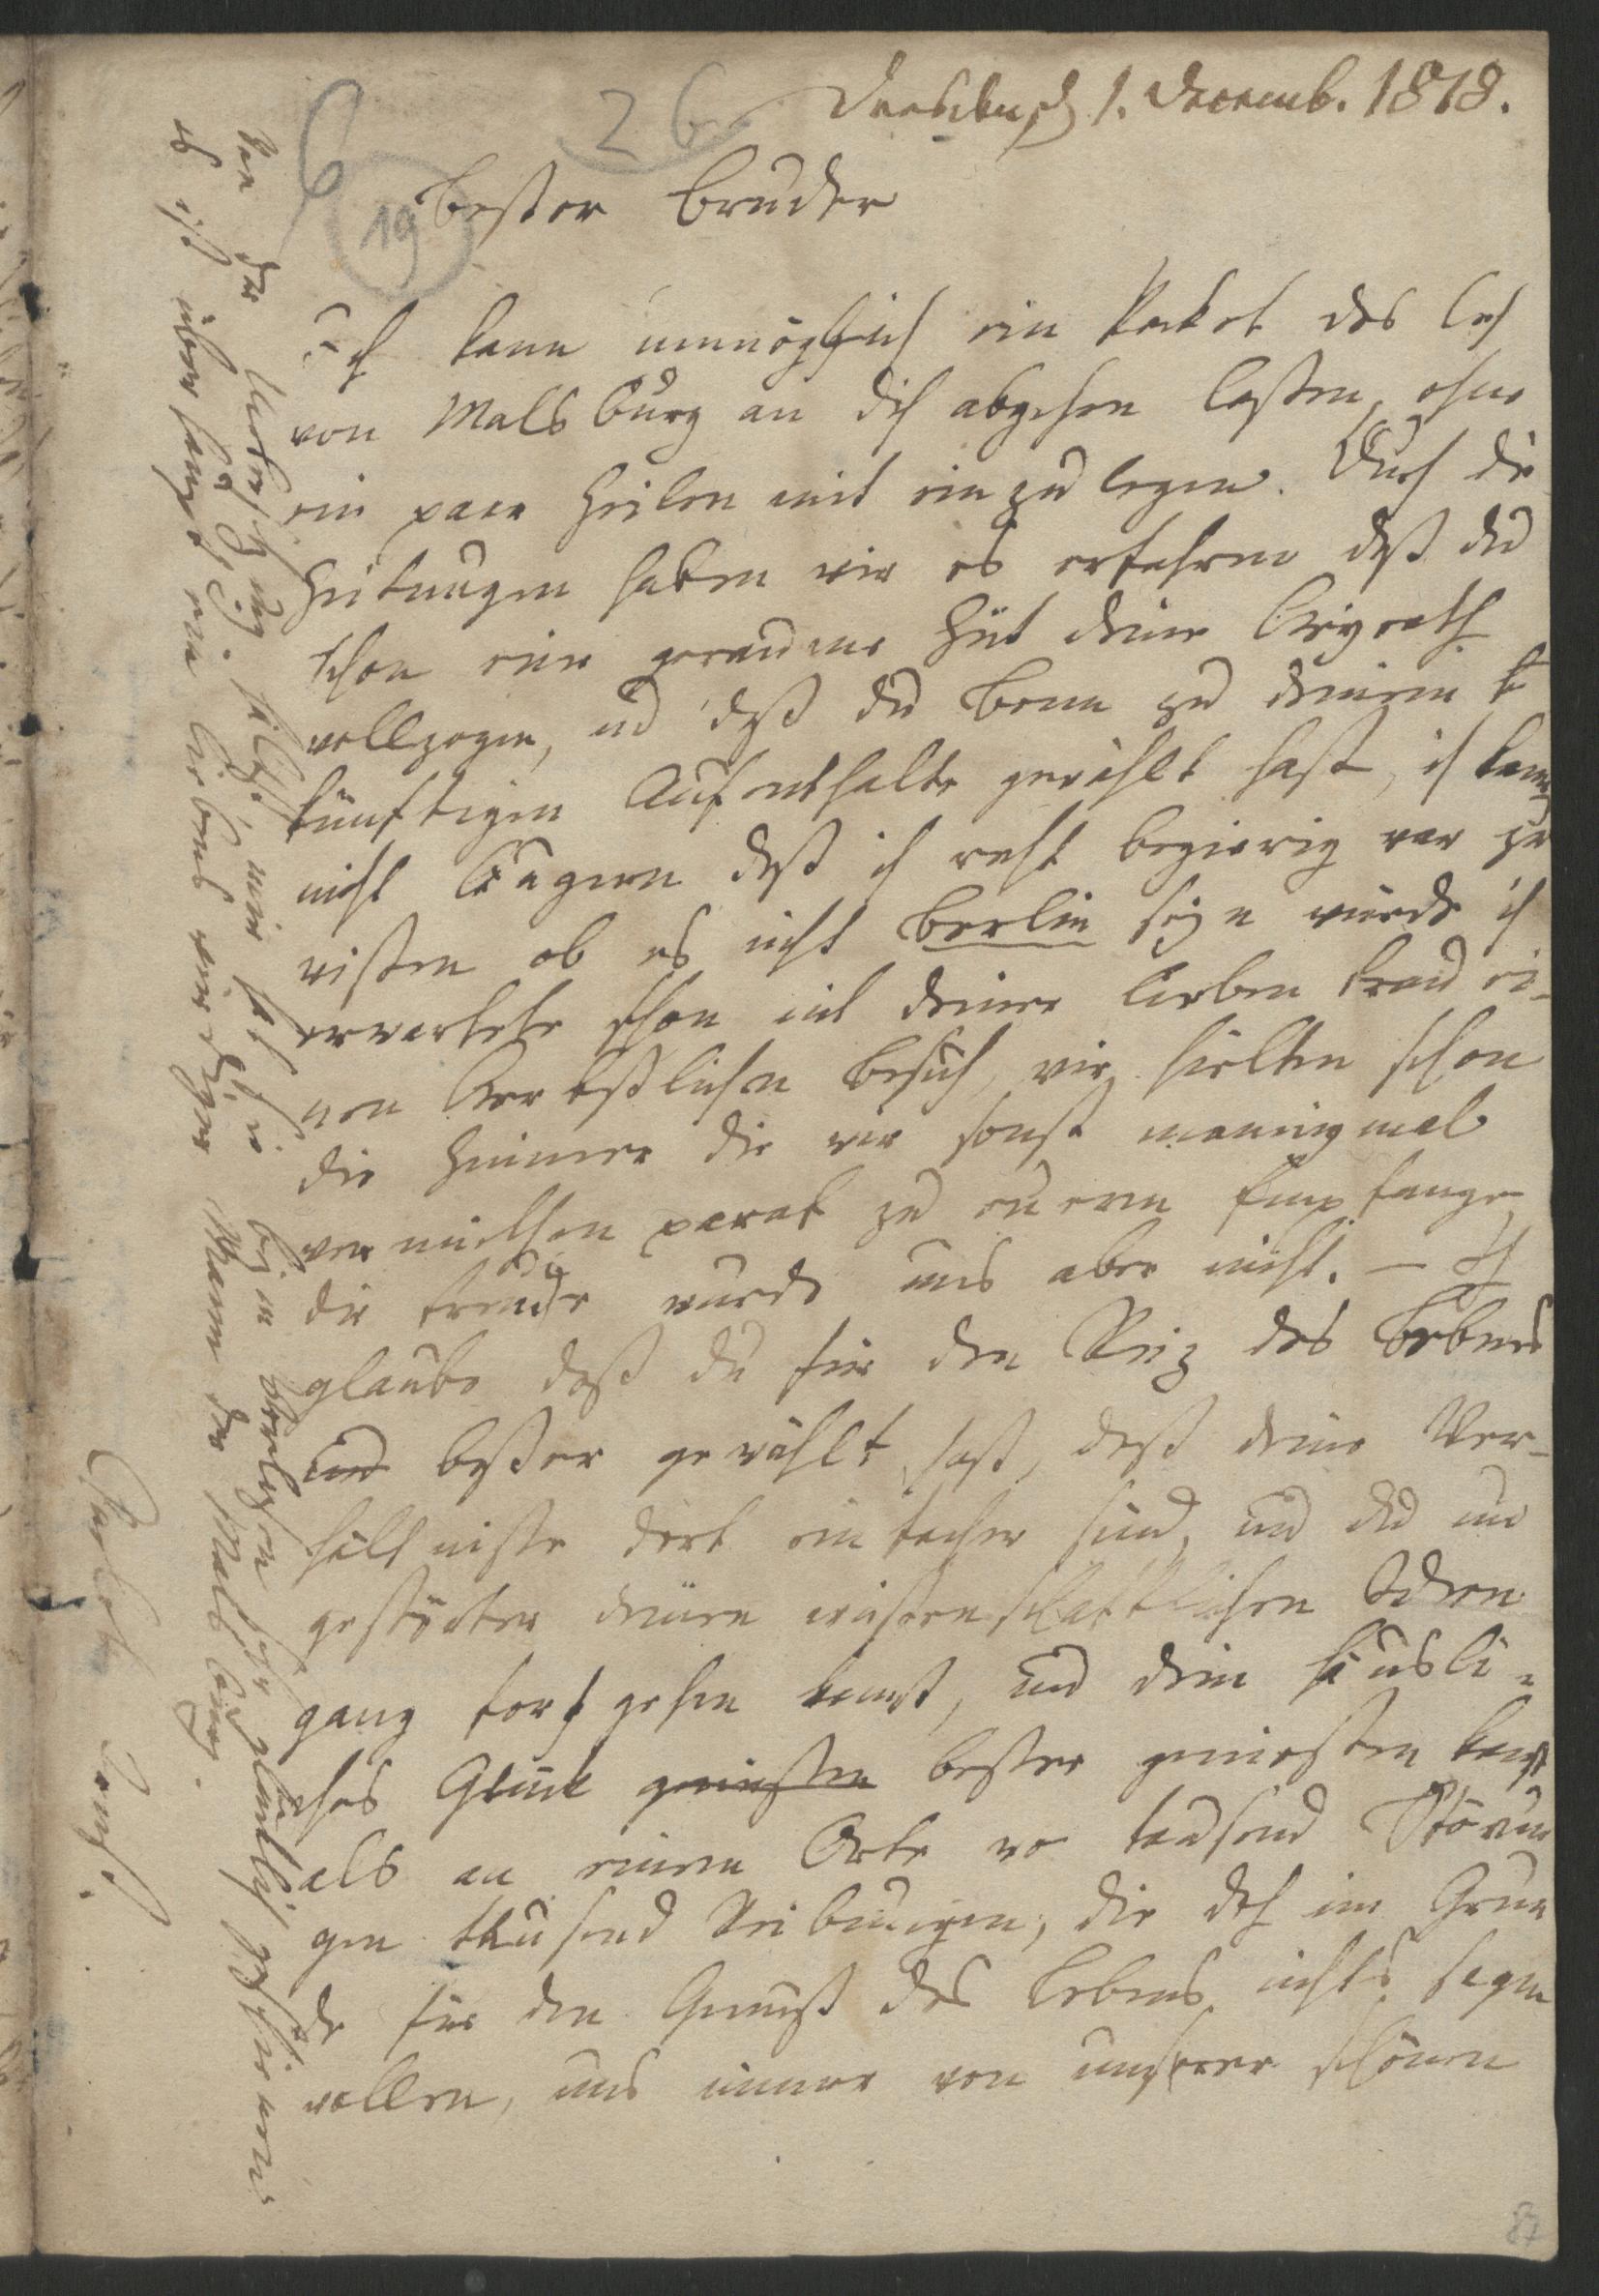 Dresden d 1. Decemb. 1818.
26
6
19
bester Bruder
Ich kann unmöglich ein Packet des Leg
von Malsburg an dich abgehen lassen, ohne
ein paar Zeilen mit ein zu legen. Durch die
Zeitungen haben wir es erfahren daß du
schon eine geraume Zeit deine Heyrath
vollzogen, und daß du Bonn zu deinem
künftigen Aufenthalte gewählt hast, ich kann
nicht läugnen daß ich recht begierig war zu
wissen ob es nicht Berlin seyn würde ich
erwartete schon mit deiner lieben Frau ei-
nen Herbstlichen Besuch, wir hielten schon
die Zimmer die wir sonst manigmal
vermiethen parat zu euerm Empfange
die Freude wurde uns aber nicht. – Ich
glaube daß du für den Reiz des Lebens
und besser gewählt hast, daß deine Ver-
hältnisse dort einfacher sind, und du un
gestöhrter deinen wissenschaftlichen Ideen
gang fort gehen kannst, und dein häusli-
ches Glück geniessen besser geniessen kanst
als an einem Orte wo tausend Störun
gen tausend Reibungen, die doch im Grun
de für den Genuß des Lebens nichts sagen
wollen, uns immer von unserer schönen
von der Uebersetzung
bey
es ist überhaupt ein liebenswürdiger Mann der Malsburg.
Charlotte Ernst.
87